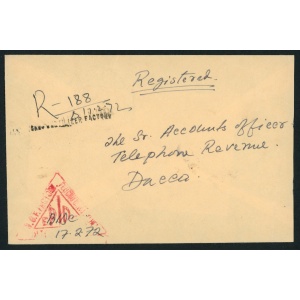 Registered
R-188
17-2-72
FACTORY
The Sr. Accounts Officer
Telephone Revenue.
Dacca.
17.2.72